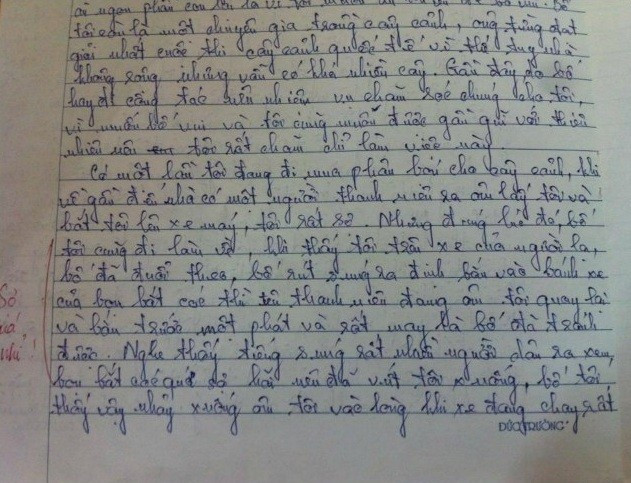 ăn ngon phần còn lại là vì tôi muốn
tôi còn là một chuyên gia trồng cây cảnh, ông từng đạt
giải nhất cuộc thi cây cảnh quốc tế vì thế tuy nhà
không rộng nhưng vẫn có khá nhiều cây. Gần đây do bố
hay đi công tác nên nhiệm vụ chăm sóc chúng cho tôi,
vì muốn bố vui và tôi cũng muốn được gần gũi với thiên
nhiên nên tôi rất chăm chỉ làm việc này.
Có một lần tôi đang đi mua phân bón cho cây cảnh, khi
về gần đến nhà có một người thanh niên ra ôm lấy tôi và
bắt tôi lên xe máy, tôi rất sợ. Nhưng đúng lúc đó, bố
tôi cũng đi làm về, khi thấy tôi trên xe của người lạ,
bố đã đuổi theo, bố rút súng ra định bắn vào bánh xe
của bọn bắt cóc thì tên thanh niên đang ôm tôi quay lại
và bắn trước một phát và rất may là bố đã tránh
được. Nghe thấy tiếng súng rất nhiều người dân ra xem,
bọn bắt cóc quá sợ hãi nên đã vứt tôi xuống, bố tôi
thấy vậy nhảy xuống ôm tôi vào lòng khi xe đang chạy rất
Sợ
giá
như!